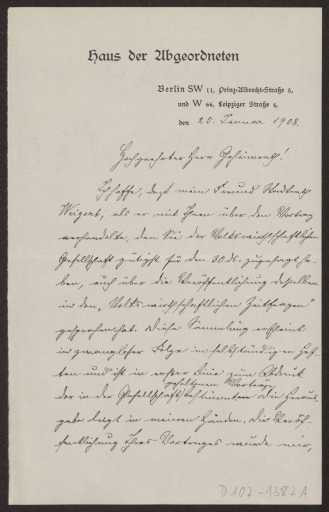 Haus der Abgeordneten
Berlin SW 11, Prinz-Albrecht-Straße 5.
und W 66, Leipziger Straße 4.
den 20. Januar 1908.
Hochgeehrter Herr Geheimrat!
Ich hoffe, daß mein Freund Stadtrat
Weigert, als er mit Ihnen über den Vortrag
verhandelte, den Sie der Volkswirtschaftlichen
Gesellschaft gütigst für den 30. ds. zugesagt ha-
ben, auch über die Veröffentlichung desselben
in den „Volkswirtschaftlichen Zeitfragen"
gesprochen hat. Diese Sammlung erscheint
in zwangloser Folge in selbständigen Hef-
ten und ist in erster Linie zum Abdruck
der in der Gesellschaft gehaltenen Vorträge
bestimmt. Die Heraus-
gabe liegt in meinen Händen. Die Veröf-
fentlichung Ihres Vortrages würde mir,
D 107-1382 A